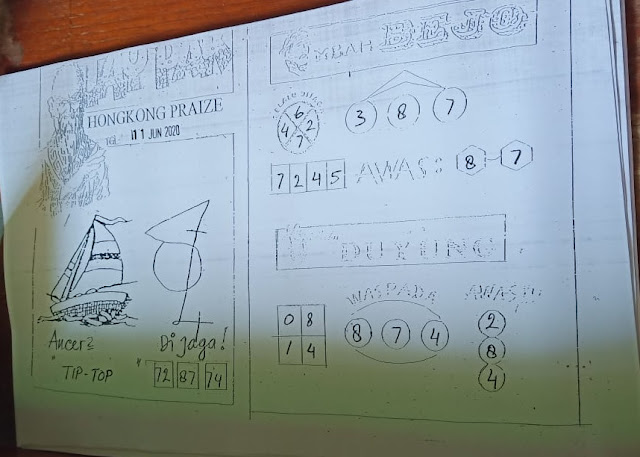 HONGKONG PRAIZE
TGL. 11 JUN 2020
Ancer2
"TIP-TOP"
Di jaga!
72 87 74
MBAH BEJO
6
4 2
7
3 8 7
7 2 4 5
AWAS: 8 - 7
DUYUNG
0 8
1 4
WASPADA
8 7 4
AWAS
2
8
4